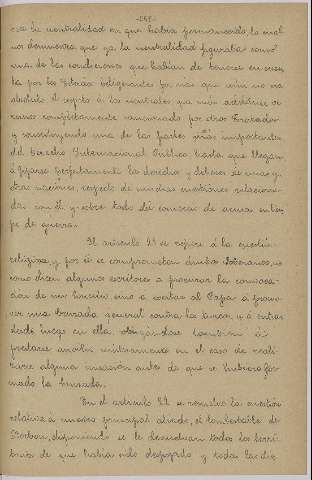 era la neutralidad en que habia permanecido, lo cual
nos demuestra que ya la neutralidad figuraba como
una de las condiciones que habian de tenerse en cuen
ta por los Estados beligerantes por mas que aun no era
absoluto el respeto á los neutrales que mas adelante ve
remos completamente sancionado por otros Tratados
y constituyendo una de las partes más importantes
del Derecho Internacional Público, hasta que llegan
á fijarse perfectamente los derechos y deberes de unas y
otras naciones, respecto de muchas cuestiones relaciona
das con él y sobre todo del comercio de armas en tiem
po de guerra.
El artículo 21 se refiere á la cuestión
religiosa y por él se comprometen ambos Soberanos, no
como dicen algunos escritores a procurar la convoca
ción de un Concilio sino a exortar al Papa a promo
ver una cruzada general contra los turcos, y á entrar
desde luego en ella, obligándose tambien á
prestarse auxilio mutuamente en el caso de reali
zarse alguna invasion antes de que se hubiera for
mado la cruzada.
En el artículo 22 se resuelve la cuestión
relativa á nuestro principal aliado, el Condestable de
Borbon, disponiendo se le devuelvan todos los terri
torios de que habia sido despojado y todos los de